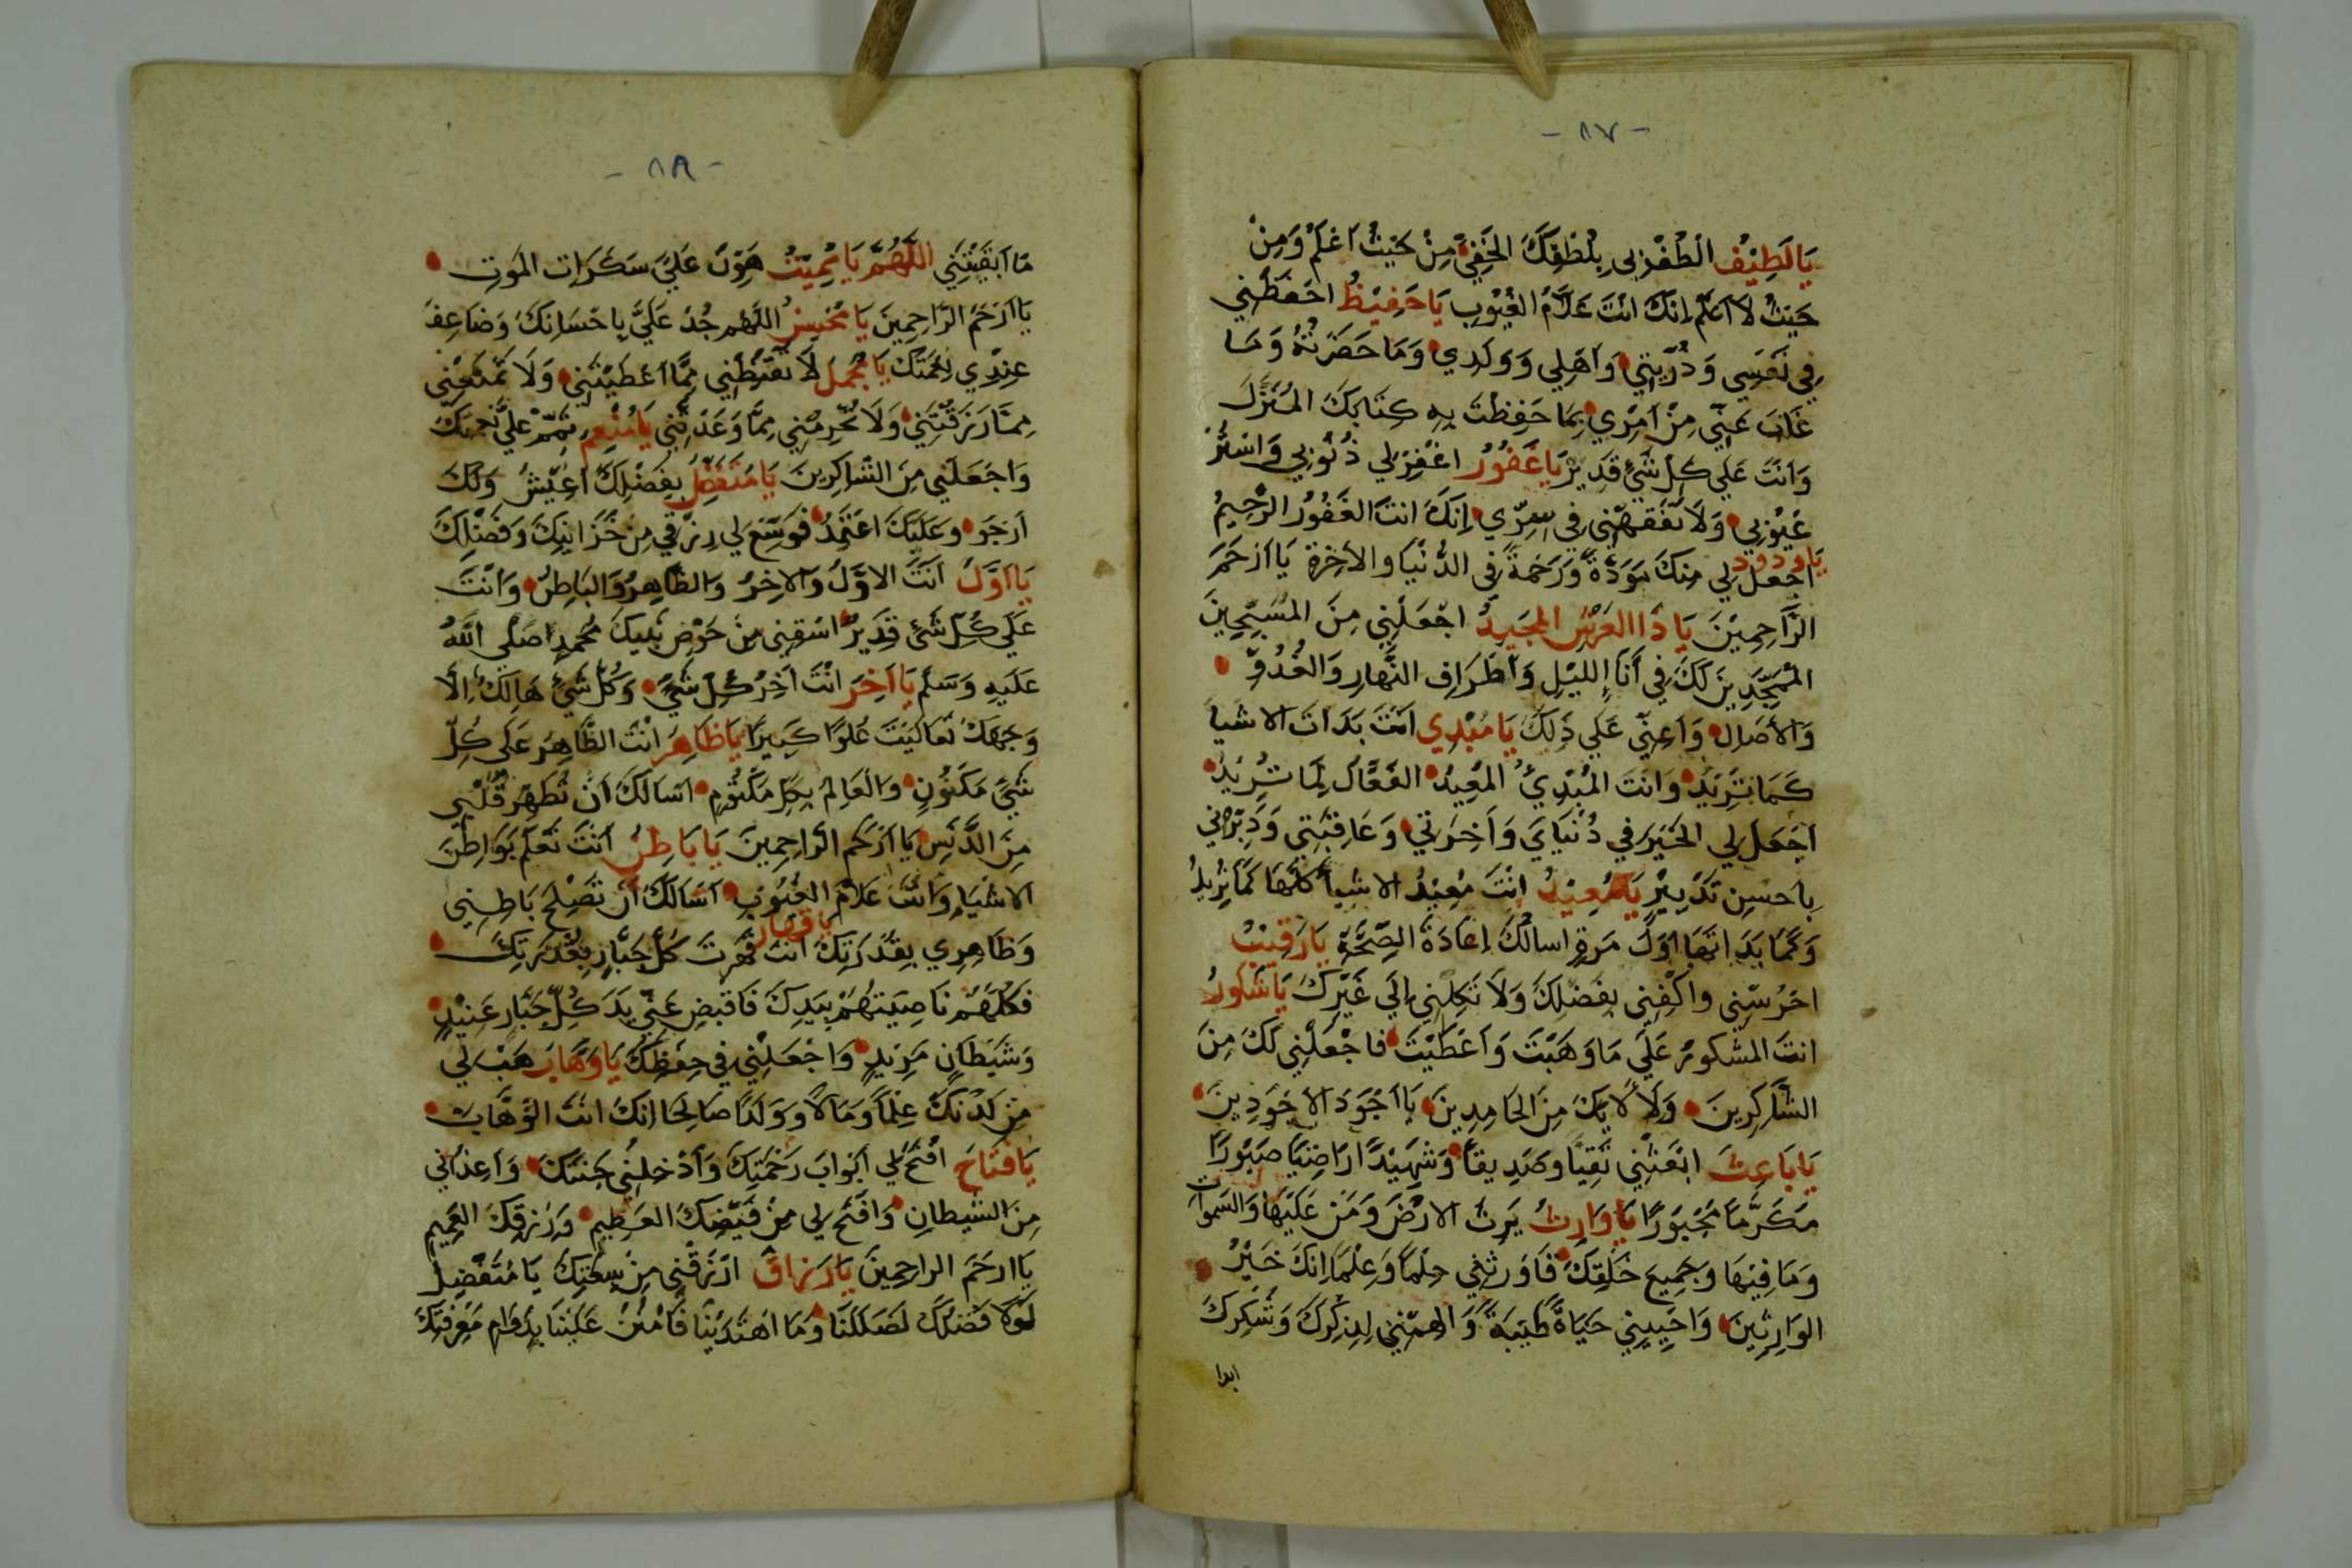 - ٨٧ -
يَا لَطِيْفُ الْطُفْ بِي بِلُطْفِكَ الخَفِيِّ مِنْ حَيْثُ اَعْلَمُ وَمِنْ
حَيْثُ لَا اَعْلَم اِنَّكَ انْتَ عَلَّامُ الغُيُوبِ يَا حَفِيْظُ احْفَظْنِي
فِي نَفْسِي وَذُرِّيَّتِي وَاَهْلِي وَوَلَدِي وَمَا حَضَرْتُهُ وَمَا
غَابَ عَنِّي مِنْ اَمْرِي بِمَا حَفِظْتَ بِهِ كِتَابَكَ المُنَزَّلَ
وَاَنْتَ عَلَي كِلّ شَيْءٍ قَدِيرْ يَا غَفُوْرُ اغْفِرْ لِي ذُنُوْبِي وَاسْتُرْ
عُيُوْبِي وَلَا تَفْضَحْنِي فِي سِرِّي اِنَّكَ انتَ الغَفُوْرُ الرَّحِيمُ
يَا ودود
اجْعَل لِي مِنْكَ مَوَدَّةً وَرَحْمَةً فِي الدُّنْيَا وَالاَخِرَةِ يَا اَرْحَمَ
الرَّاحِمِيْنَ يَا ذَا العَرْشِ المَجِيدُ اجْعَلْنِي مِنَ المُسَبِّحِينَ
المُمَجِّدِينَ لَكَ فِي أَنَاءِ اللَيْلِ وَاَطْرَافِ النَّهارِ وَالغُدُوِّ
وَالاَصَالِ وَاَعِنِّي عَلَي ذَلِكَ يَا مُبْدِي اَنْتَ بَدَاتَ الاشْيَا
كَمَا تُرِيْدُ وَانْتَ المُبْدِئُ المُعِيْدُ الفَعَّالُ لِمَا تُرِيْدُ
اجْعَل لِي الخَيْرَ فِي دُنْيَايَ وَاَخِرَتِي وَعَاقِبَتِي وَدَبِّرْنِي
بِاَحْسِن تَدْبِيْرٍ يَا مُعِيْدُ انْتَ مُعِيْدُ الاشْيَا كُلّهَا كَمَا تُرِيْدُ
وَكَمَا بَدَاتهَا اوَّلَ مَرةٍ اسالُكَ اِعَادَةَ الصِّحَّةِ يَا رَقِيْبُ
احْرُسْنِي وَاكْفِنِي بِفَضْلِكَ وَلَا تَكِلْنِي اِلَي غَيْرِكَ يَا شَكُورُ
انتَ المَشكورُ عَلَي مَا وَهَبْتَ وَاَعْطَيْتَ فَاجْعَلْنِي لَكَ مِنَ
الشَّاكِرِينَ وَلآلاَئِكَ مِنَ الحَامِدِينَ يَا اَجْوَدَ الاَجْوَدِينَ
يَا بَاعِثَ ابْعَثْنِي تَقِيًّا وصَدِيقاً وَشَهِيْدًا رَاضِيًا صَبُوْرًا
مُكَرَّمًا مَحْبُوْرًا يَا وَارِثُ يَرِثُ الاَرْضَ وَمَنْ عَلَيْهَا وَالسَموَاتِ
وَمَا فِيْهَا وَجَمِيعَ خَلْقِكَ فَاَوْرِثْنِي حِلْمًا وَعِلْمًا اِنَّكَ خَيْرُ
الوَارِثِيْنَ وَاحْيِيْنِي حَيَاةً طَيِّبَةً وَالهِمْنِي لِذِكْرِكَ وَشُكْرِكَ
ابدا
- ٨٨ -
مَا اَبْقَيْتَنِي اللَّهُمَّ يَا مُمِيْتُ هَوِّنْ عَلَيَّ سَكَرَات المَوتِ
يَا اَرْحَمَ الرَّاحِمِينَ يَا مُحْسِنُ اللَّهُم جُدْ عَلَيَّ بِاِحْسَانِكَ وَضَاعِف
عِنْدِي نِعْمَتَكَ يَا مُجْمِلُ لَا تُقَنِّطْنِي مِمَّا اَعْطَيْتَنِي وَلَا تَمْنَعْنِي
مِمَّا رَزَقْتَنِي وَلَا تُحْرِمْنِي مِمَّا وَعَدْتَنِي يَا مُنْعِم تَمِّمْ عَلَيَّ نِعْمَتَكَ
وَاجْعَلْنِي مِنَ الشَّاكِرِينَ يَا مُتَفَضِّلُ بِفَضْلِكَ اَعِيْشُ وَلَكَ
اَرْجُو وَعَلَيْكَ اعْتَمِدُ فَوَسِّعْ لِي رِزْقِي مِنْ خَزَائِنِكَ وَفَضْلِكَ
يَا اَوَّلُ اَنْتَ الاوَّلُ وَالاخِرُ وَالظَّاهِرُ وَالبَاطِنُ وَاَنْتَ
عَلَي كُلِّ شَيْءٍ قَدِيْرٌ اسْقِنِي مِنْ حَوْضِ نَبِيكَ مُحَمدٍ صَلَّى اللهُ
عَلَيهِ وَسَلم يَا اَخِرُ انْتَ اَخِرُ كُلّ شَيْءٍ وَكُلُّ شَيْءٍ هَالِكٌ اِلَّا
وَجهَكَ تَعَالَيْتَ عُلُوًّا كَبِيرًا يَا ظَاهِرَ انْتَ الظَّاهِرُ عَلَى كُلِّ
شَيْءٍ مَكْنُوْنٍ وَالعَالِمُ بِكُلِ مَكْتُومٍ اسَالُكَ اَنْ تُطَهِّرَ قَلْبِي
مِنَ الدَّنَسِ يَا اَرْحَمَ الرَّاحِمِينَ يَا بَاطِنُ اَنْتَ تَعْلَم بَوَاطِنَ
الاشْيَاءِ وَانْتَ عَلَّامُ الغُيُوبِ اَسَالُكَ اَنْ تُصْلِحَ بَاطِنِي
يَا قهار
وَظَاهِرِي بِقُدْرَتِكَ انْتَ قَهَرْتَ كُلَّ جَبَّارٍ بِقُدْرَتِكَ
فَكُلّهُمْ نَاصِيَتهُمْ بِيَدِكَ فَاقْبِضْ عَنِّي يَدَ كُلِّ جَبَّارٍ عَنِيْدٍ
وَشَيْطَانٍ مَرِيْدٍ وَاجْعَلْنِي فِي حِفْظِكَ يَا وَهَّابَ هَبْ لِي
مِنْ لَدُنْكَ عِلْماً وَمَالاً وَوَلَدًا صَالِحًا اِنَّكَ انْتَ الوَهَّابَ
يَا فَتَّاحَ افْتَحْ لِي اَبْوَابَ رَحْمَتِكَ وَاَدْخِلْنِي جَنَّتَكَ وَاَعِذْنِي
مِنَ الشَّيطانِ وَافْتَح لِي مِنْ فَيْضِكَ العَظِيمِ وَرِزْقِكَ العَمِيمِ
يَا ارحَمَ الراحِمِينَ يَا رَزاقُ ارْزُقْنِي مِنْ سِعَتِكَ يَا مُتَفَضِّلُ
لَوْلَا فَضْلكَ لَضَلَلْنَا وَمَا اهْتَدَيْنَا فَامْنُنْ عَلَيْنَا بِدَوَامِ مَعْرِفَتِكَ